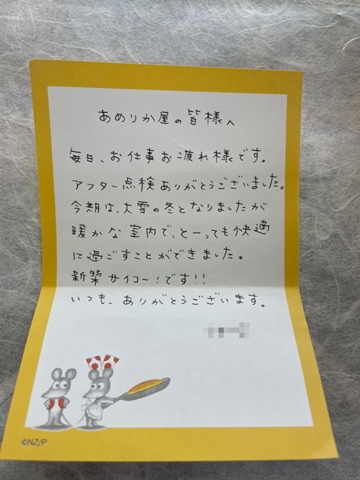 あめりか屋の皆様へ
毎日、お仕事お疲れ様です。
アフター点検ありがとうございました。
今期は、大雪の冬となりましたが
暖かな室内で、とーっても快適
に過ごすことができました。
新築サイコー!です!!
いつも、ありがとうございます。
©NZ/P